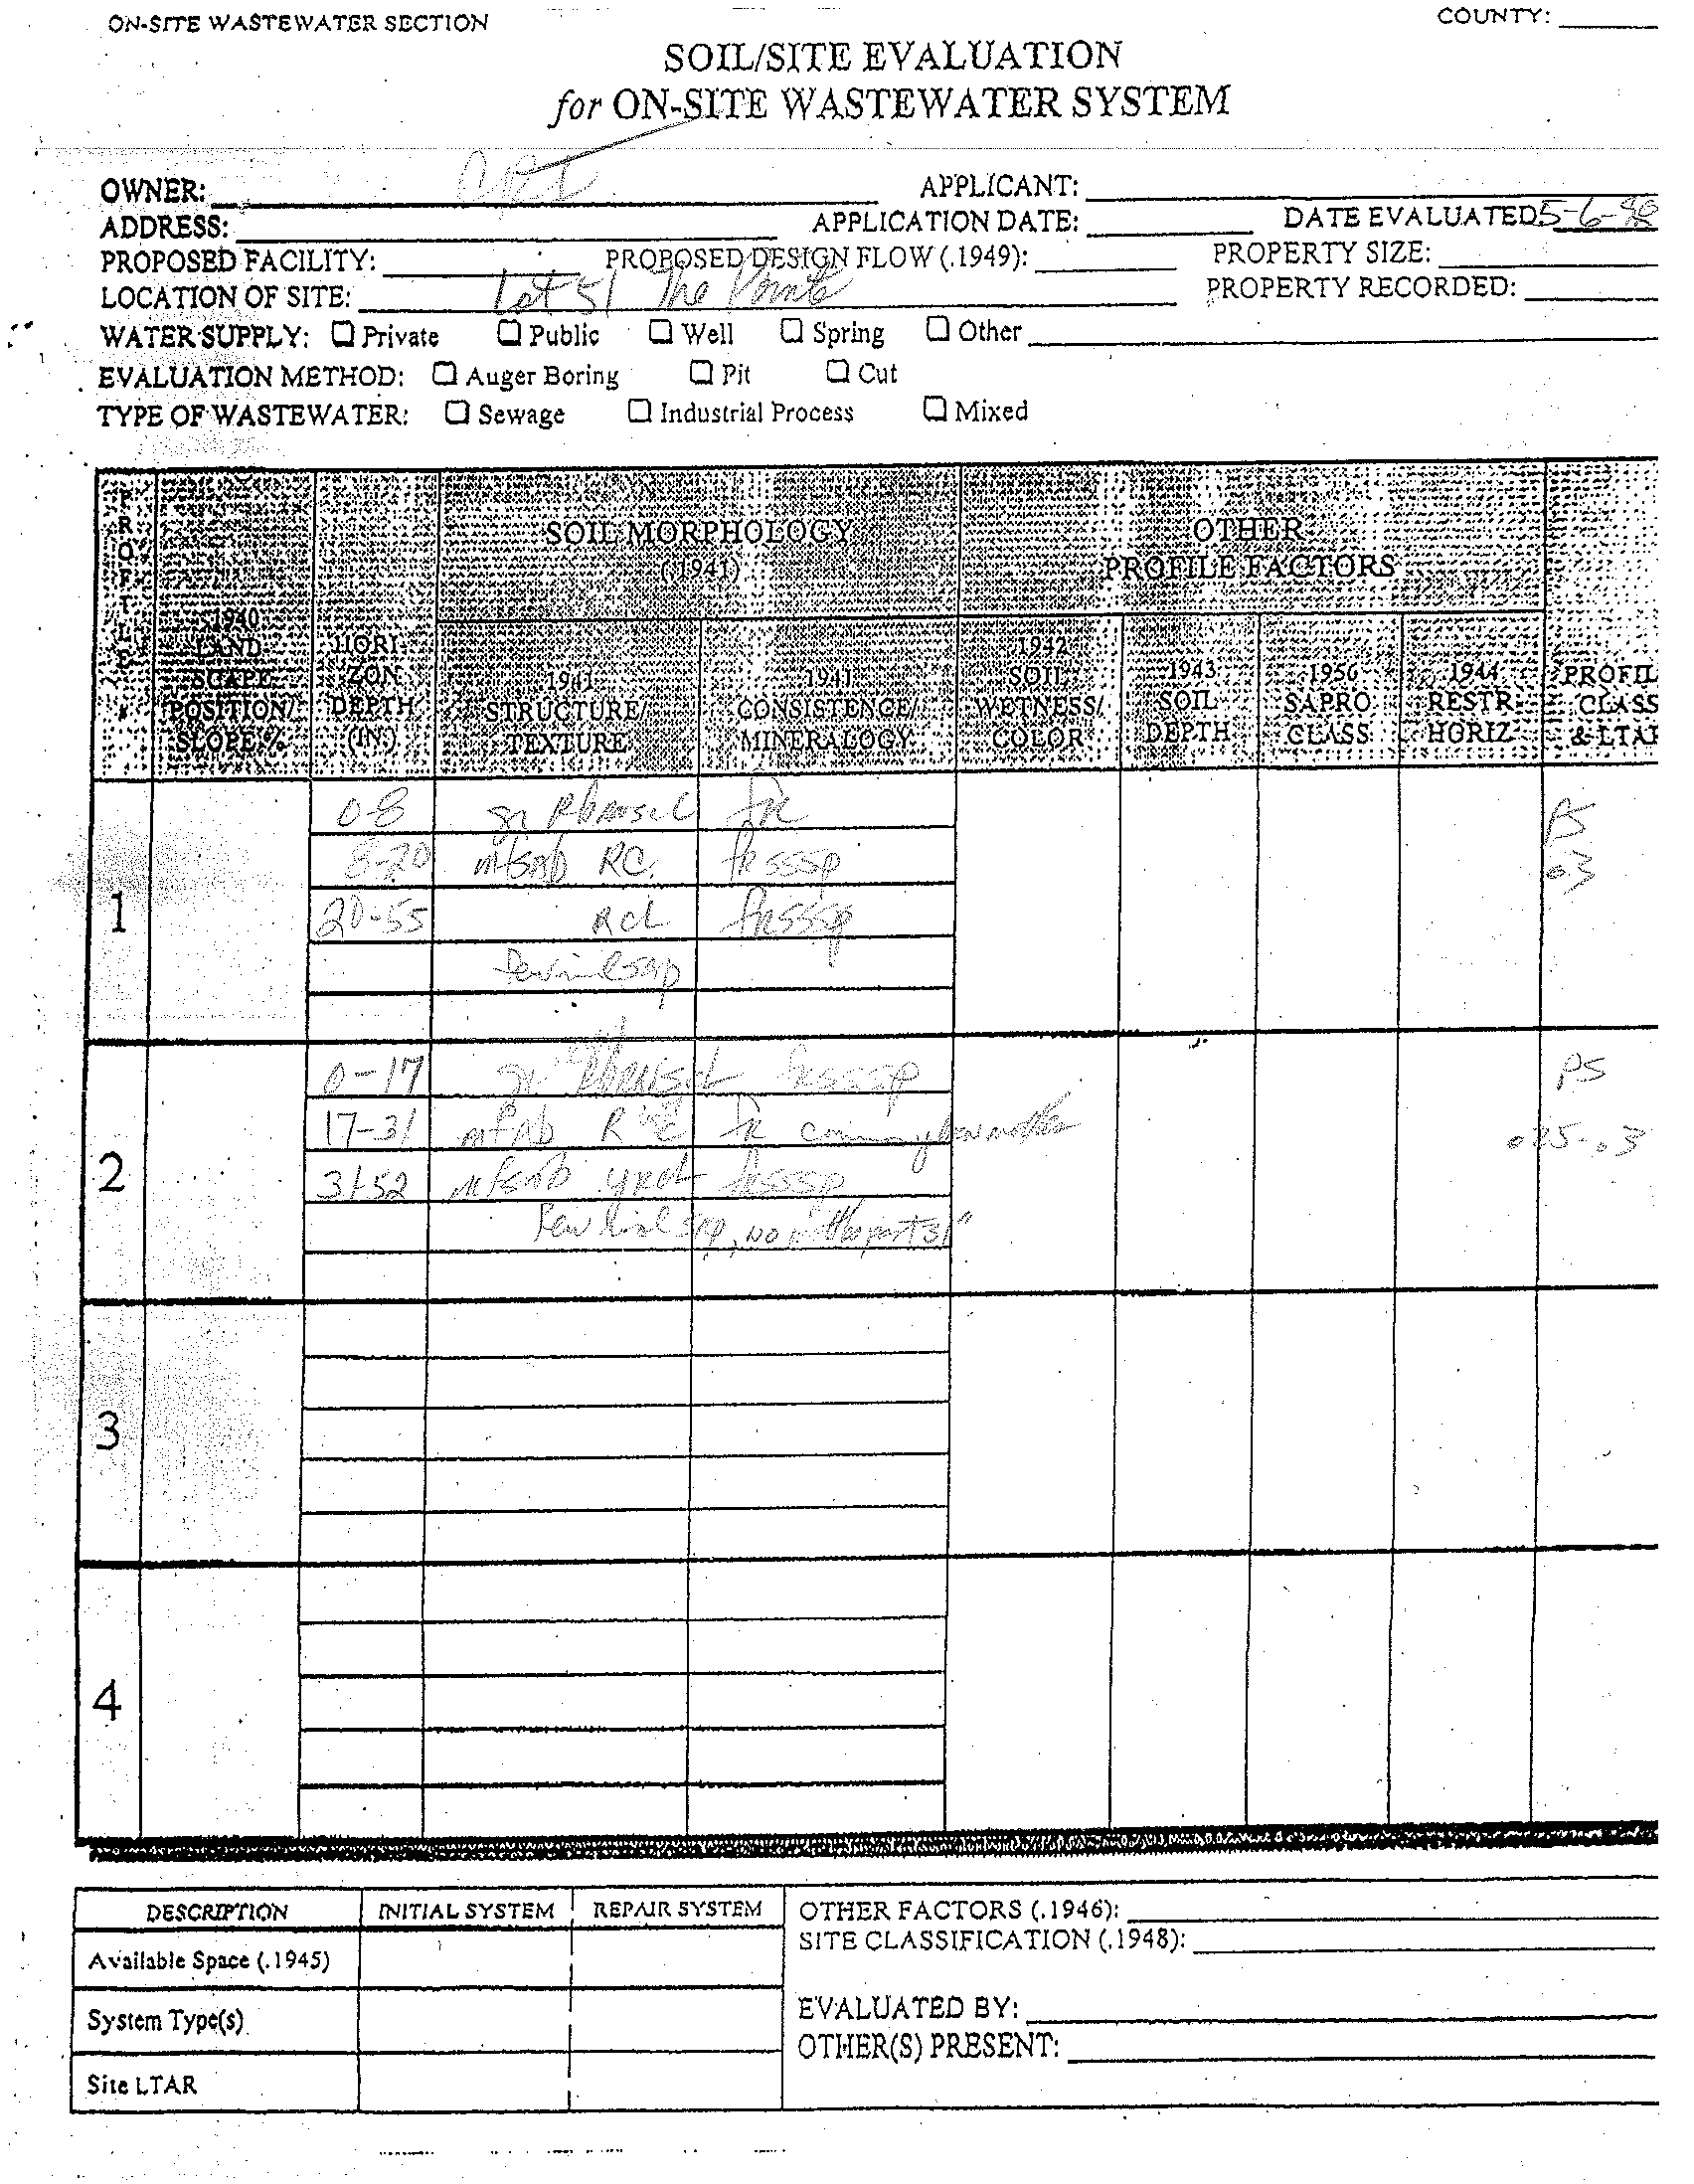 ON-SITE WASTEWATER SECTION COUNTY:
SOIL/SITE EVALUATION
for ON-SITE WASTEWATER SYSTEM
OWNER: CRI APPLICANT:
ADDRESS: APPLICATION DATE: DATE EVALUATED 5-6-98
PROPOSED FACILITY: PROPOSED DESIGN FLOW (.1949): PROPERTY SIZE:
LOCATION OF SITE: Lot 51 The Pointe PROPERTY RECORDED:
WATER SUPPLY: Private Public Well Spring Other
EVALUATION METHOD: Auger Boring Pit Cut
TYPE OF WASTEWATER: Sewage Industrial Process Mixed
PROFILE #
.1940 LANDSCAPE POSITION/ SLOPE %
HORIZON DEPTH (IN)
SOIL MORPHOLOGY
(.1941)
OTHER
PROFILE FACTORS
.1941 STRUCTURE/ TEXTURE
.1941 CONSISTENCE/ MINERALOGY
.1942 SOIL WETNESS/ COLOR
.1943 SOIL DEPTH
.1956 SAPRO CLASS
.1944 RESTR HORIZ
PROFIL CLASS & LTAR
1
0-8 gr fr PS
8-20 mfsab RC fr sssp .03
20-55 RCL frsssp
2
0-17 gr frsssp PS
17-31 mfab R C fr common .025-.03
31-52 mfsab YRCL frsssp
Few sap, no past 31"
3
4
DESCRIPTION INITIAL SYSTEM REPAIR SYSTEM
Available Space (.1945)
System Type(s)
Site LTAR
OTHER FACTORS (.1946):
SITE CLASSIFICATION (.1948):
EVALUATED BY:
OTHER(S) PRESENT: